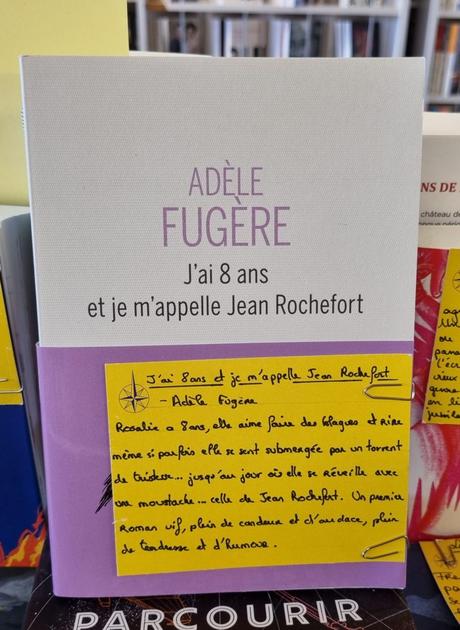 ADÈLE
FUGÈRE
J'ai 8 ans
et je m'appelle Jean Rochefort
J'ai 8 ans et je m'appelle Jean Rochefort
- Adèle Fugère
Rosalie a 8 ans, elle aime faire des blagues et rire
même si parfois elle se sent submergée par un torrent
de tristesse... jusqu'au jour où elle se réveille avec
une moustache... celle de Jean Rochefort. Un premier
roman vif, plein de candeur et d'audace, plein
de tendresse et d'humour.
PARCOURIR
NS DE
château de